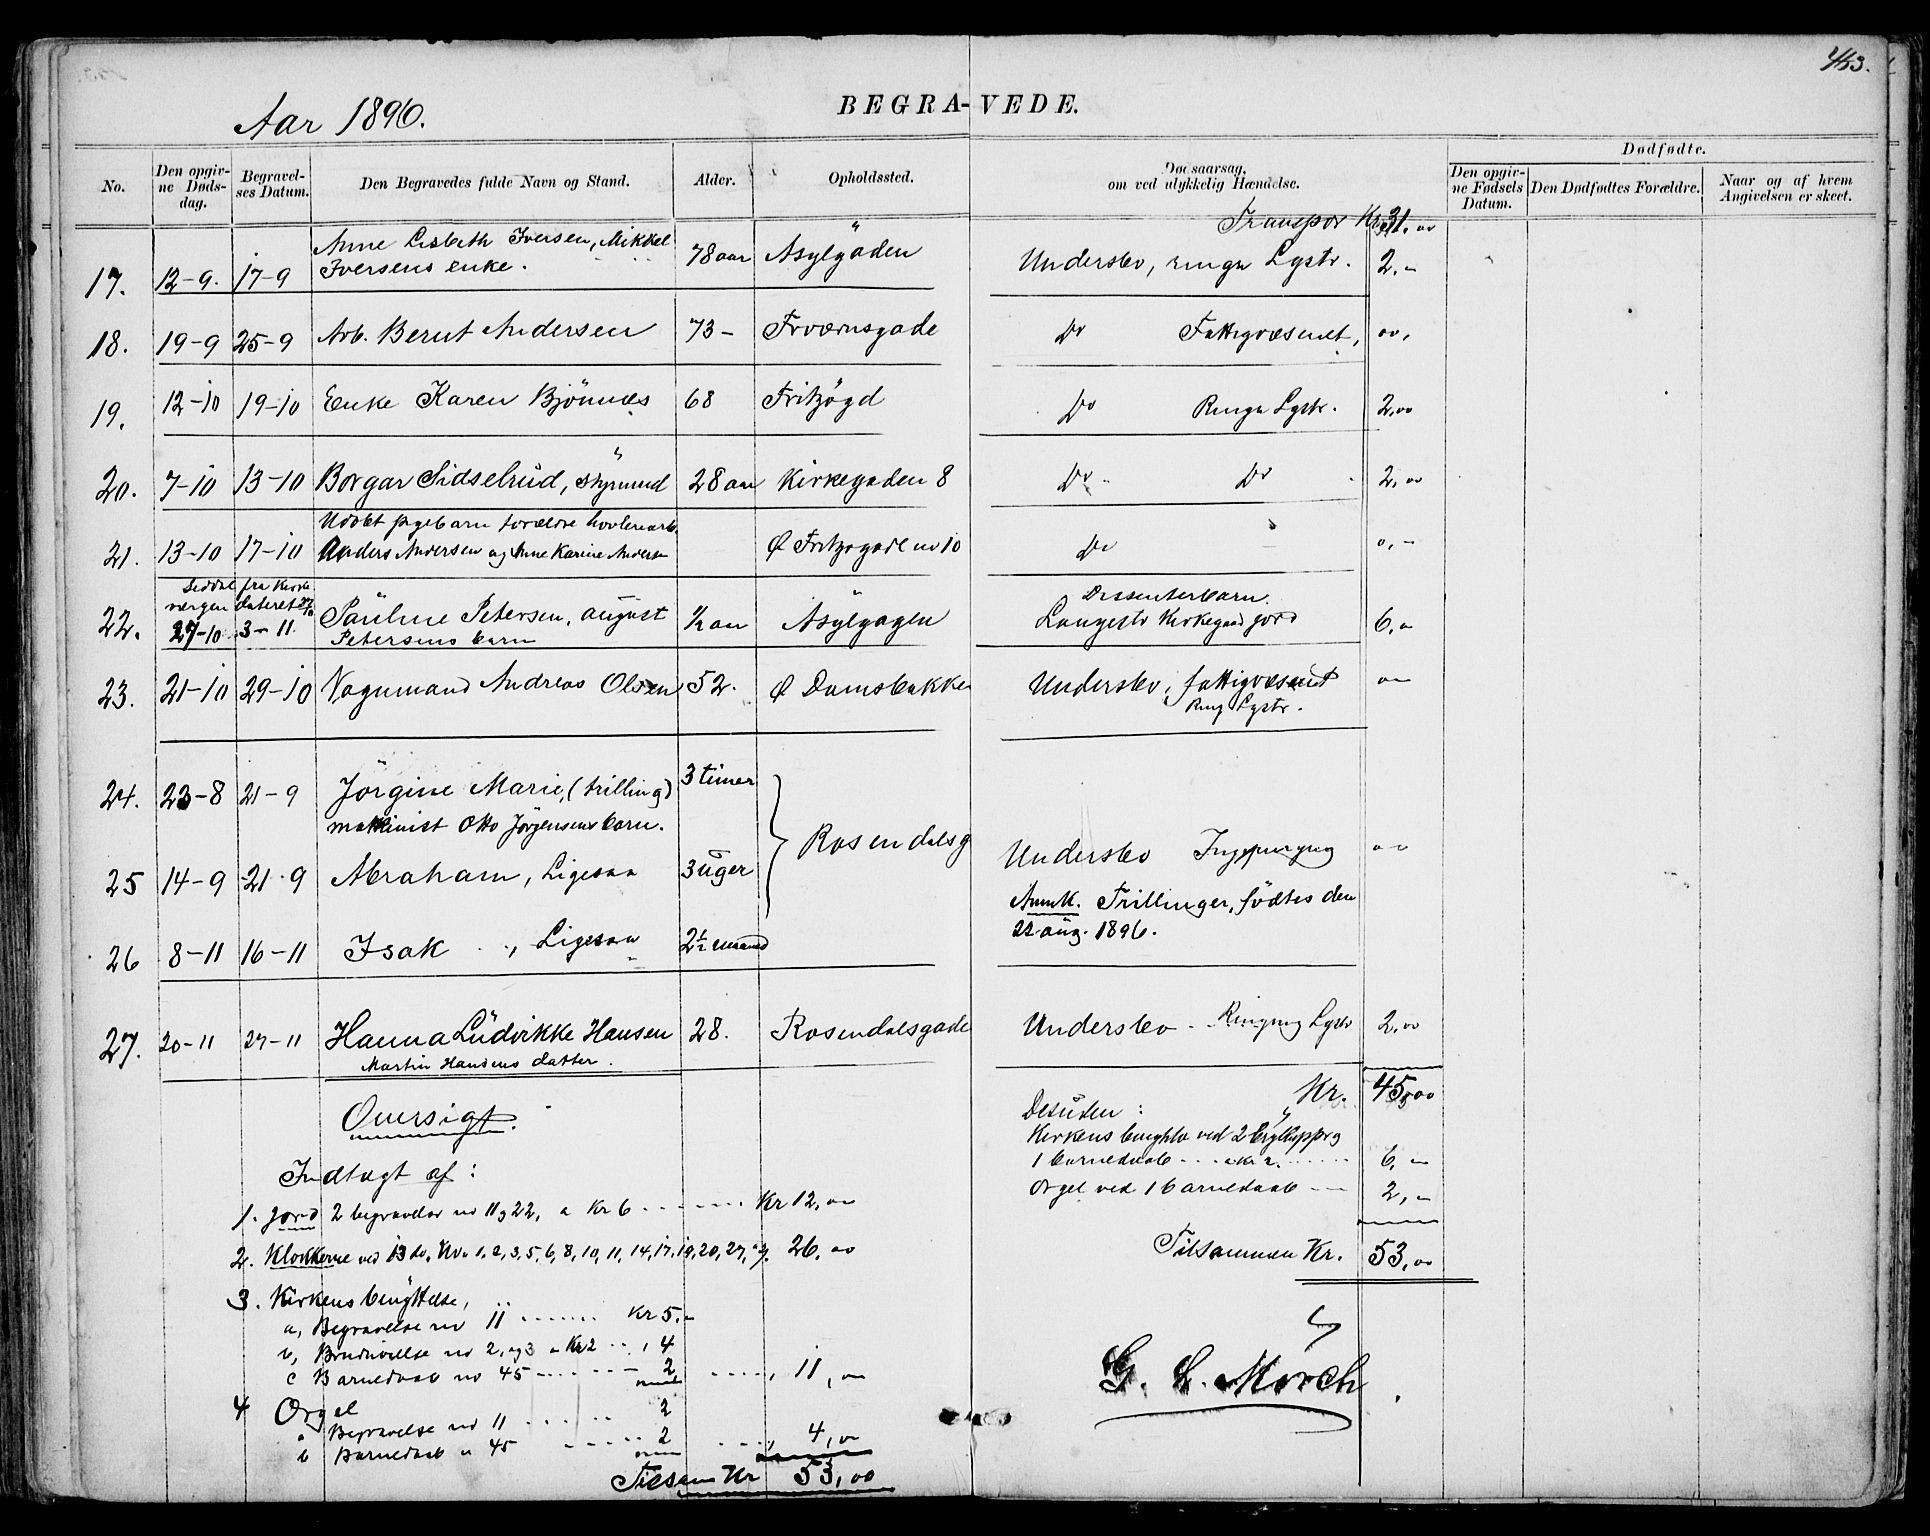 453.
Aar 1896.
BEGRA- VEDE.
No.
Den opgiv-
ne Døds-
dag.
Begravel-
ses Datum.
Den Begravedes fulde Navn og Stand.
Alder.
Opholdssted.
Dødsaarsag,
om ved ulykkelig Hændelse.
Dødfødte.
Den opgiv-
ne Fødsels
Datum.
Den Dødfødtes Forældre.
Naar og af hvem
Angivelsen er skeet.
Transpor Kr 31.00
Anne Lisbeth Iversen, Mikkel
17. 12-9. 17-9 Iversens enke. 78 aar Asylgaden Understov, ringn Lystr. 2,-
18. 19-9 25-9 Arb. Bernt Andersen 73- Do Fattigvæsenet, oo,
19. 12-10 19-10 Enke Karen Bjönnes 68 Fritzögd Do Ringn Lystr. 2,00
20. 7-10 13-10 Borgar Sidselrud, styrmnd 28 aar Kirkegaden 8 Do Do 2,00
Udöbt pigebarn forældre hövleriarb.
21. 13-10 17-10 Anders Andersen og Anne Karine Andersen Ø Fritzøgade no 10 Do 0,-
Seddel fra Kirke
værgen dateret
22. 27-10 3-11. Pauline Petersen, august ½ aar Dissenterbarn.
Petersens barn Langestr Kirkegaard jord 6,-
23. 21-10 29-10 Vognmand Andreas Olsen 52. Ø Damsbakke Understov, fattigvæsenet
Ring Lystr.
24. 23-8 21-9 Jörgine Marie, (trilling) 3 timer
maskinist Otto Jørgensens barn.
Rosendalsg
25 14-9 21-9 Abraham, Ligesaa 3 uger Understov
Anmk. Trillinger, födtes den
22 aug. 1896.
26 8-11 16-11 Isak, Ligesaa 2½ maaned
27. 20-11 27-11 Hanna Ludvikke Hansen 28. Rosendalsgade Understov - Ringning Lystr 2,00
Martin Hansens datter.
Kr. 45,00
Oversigt.
Desuden:
1 barnedaab 6,-
Orgel ved 1 barnedaab - 2,-
Tilsammen Kr. 53,00
G. L. Mörch
Indtægt af:
1. Jord 2 begravelser no 11 og 22, a Kr 6 Kr 12,00
2. Klokkerne ved 13 do, No 1, 2, 3, 5, 6, 8, 10, 11, 14, 17, 19, 20, 27, 26,00
3. Kirkens benyttelse,
a, Begravelse no 11 Kr 5.-
b, Brudevielse no 2, og 3 a Kr 2 , 4
c Barnedaab no 45 2 , 11,00
4 Orgel
a Begravelse no 11 2
b Barnedaab n 45 2 , 4,00
Tilsam Kr 53,00